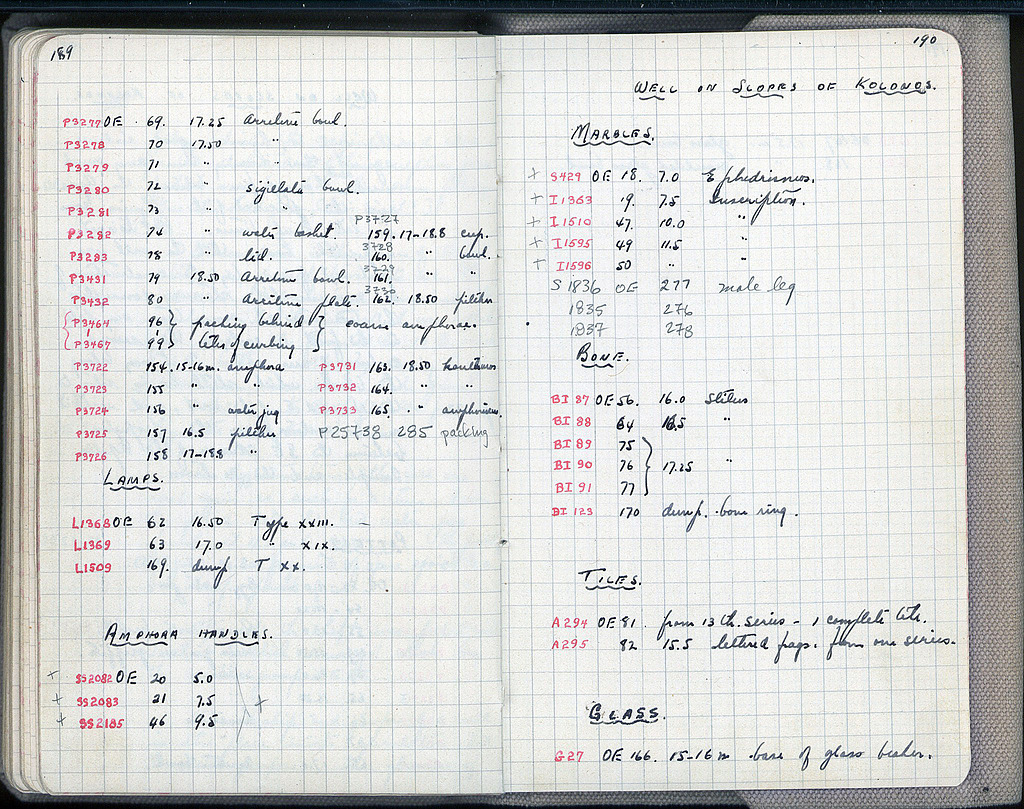 189
P3277 OE 69. 17.25 Arretine bowl.
P3278 70 17.50 "
P3279 71 " "
P3280 72 " sigillata bowl.
P3281 73 " "
P3727
P3282 74 " water basket. 159. 17-18.8 cup.
3728
P3283 78 " lid. 160. " bowl.
3729
P3431 79 18.50 Arretine bowl. 161. " "
3730
P3432 80 " Arretine plate. 162. 18.50 pitcher
P3464 96 } packing behind } coarse amphorae.
P3467 99 } tiles of curbing
P3722 154. 15-16m. amphora P3731 163. 18.50 kantharos
P3723 155 " " P3732 164. " "
P3724 156 " water jug P3733 165. " amphoriskos.
P3725 157 16.5 pitcher P25738 285 packing
P3726 158 17-18.8 "
LAMPS.
L1368 OE 62 16.50 Type XXIII. –
L1369 63 17.0 " XIX.
L1509 169. dump T XX.
AMPHORA HANDLES.
+ SS2082 OE 20 5.0
+ SS2083 21 7.5 +
+ SS2185 46 9.5
190
WELL ON SLOPES OF KOLONOS.
MARBLES.
+ S429 OE 18. 7.0 Ephedrismos.
+ I1363 19. 7.5 Inscription.
+ I1510 47. 10.0 "
+ I1595 49 11.5 "
+ I1596 50 " "
S 1836 OE 277 male leg
1835 276
1837 278
BONE.
BI 87 OE 56. 16.0 Stilus
BI 88 64 16.5 "
BI 89 75 }
BI 90 76 } 17.25 "
BI 91 77 }
BI 123 170 dump. bone ring.
TILES.
A294 OE 81. from 13th. series - 1 complete tile.
A295 82 15.5 lettered frags. from one series.
GLASS.
G27 OE 166. 15-16m base of glass beaker.